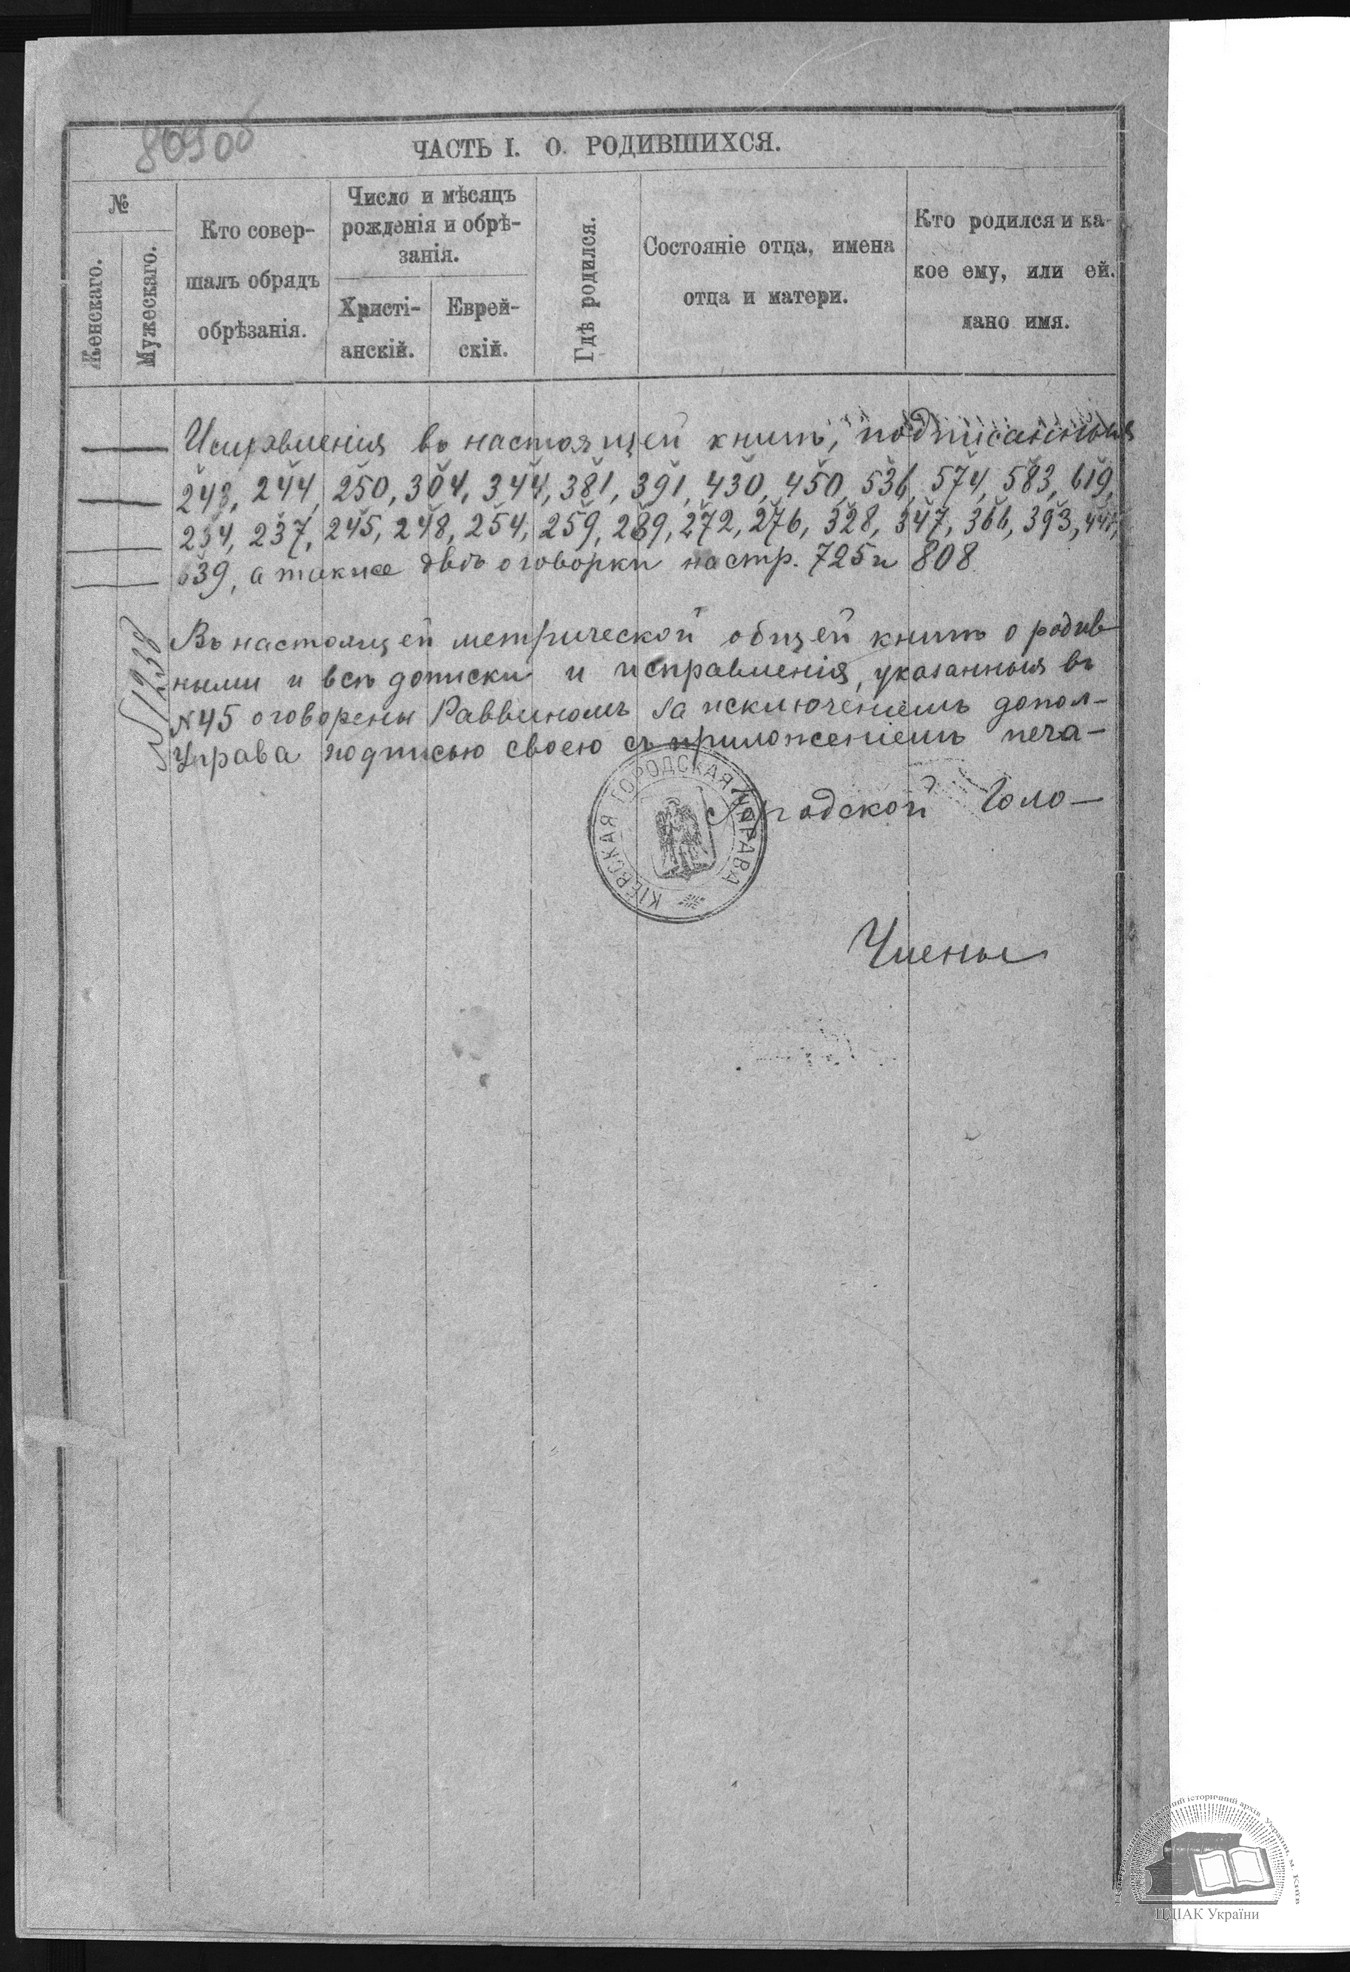 869 об
ЧАСТЬ I. О. РОДИВШИХСЯ.
№
Женскаго.
Мужескаго.
Кто совер-
шалъ обрядъ
обрѣзанія.
Число и мѣсяцъ
рожденія и обрѣ-
занія.
Христі-
анскій.
Еврей-
скій.
Гдѣ родился.
Состояніе отца, имена
отца и матери.
Кто родился и ка-
кое ему, или ей.
дано имя.
Исправленія въ настоящей книгѣ, подписанныя
243, 244, 250, 304, 344, 381, 391, 430, 450, 536, 574, 583, 619,
234, 237, 245, 248, 254, 259, 269, 272, 276, 328, 347, 366, 393, 441,
639, а также двѣ оговорки на стр. 725 и 808
№1238
Въ настоящей метрической общей книгѣ о родив-
ными и всѣ дописки и исправленія, указанныя въ
№45 оговорены Раввиномъ за исключеніемъ допол-
Управа подписью своею съ приложеніемъ печа-
Городской Голо-
КІЕВСКАЯ ГОРОДСКАЯ УПРАВА
Члены
історичний архів України, м. Київ
ЦДІАК України